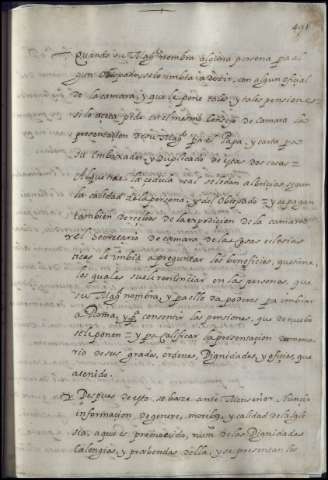 491
Quando su Magd nombra alguna persona pa al
gun Obispado, se lo embia a dezir, con algun oficial
de la camara, y que le pone tales, y tales pensiones
si lo acepta pide en el mesmo de camara la
presentacion de su Magd pa el Papa, y carta pa
su embaxador, y Duplicado de estas dos cosas
Al que trae la cedula real se le dan albricias segun
la calidad de la persona, y del Obispado y se pagan
tambien derechos de la expedicion de la camara
y el Secretario de camara de las cosas eclesias
ticas le imbia a preguntar los beneficios, que tiene,
los quales suele renunciar en las personas, que
su Magd nombra, y pa ello da poderes pa imbiar
a Roma, y pa consentir las pensiones, que de nuebo
se le ponen y pa calificar la presentacion
rio de sus grados, ordenes, Dignidades, y oficios que
a tenido.
y Despues de esto, se haze ante Monseñor Nuncio
informacion, de genere, moribus, y calidad de la Igle
sia, a que es promovido, num de las Dignidades
Calongias, y prebendas della, y se presentan los